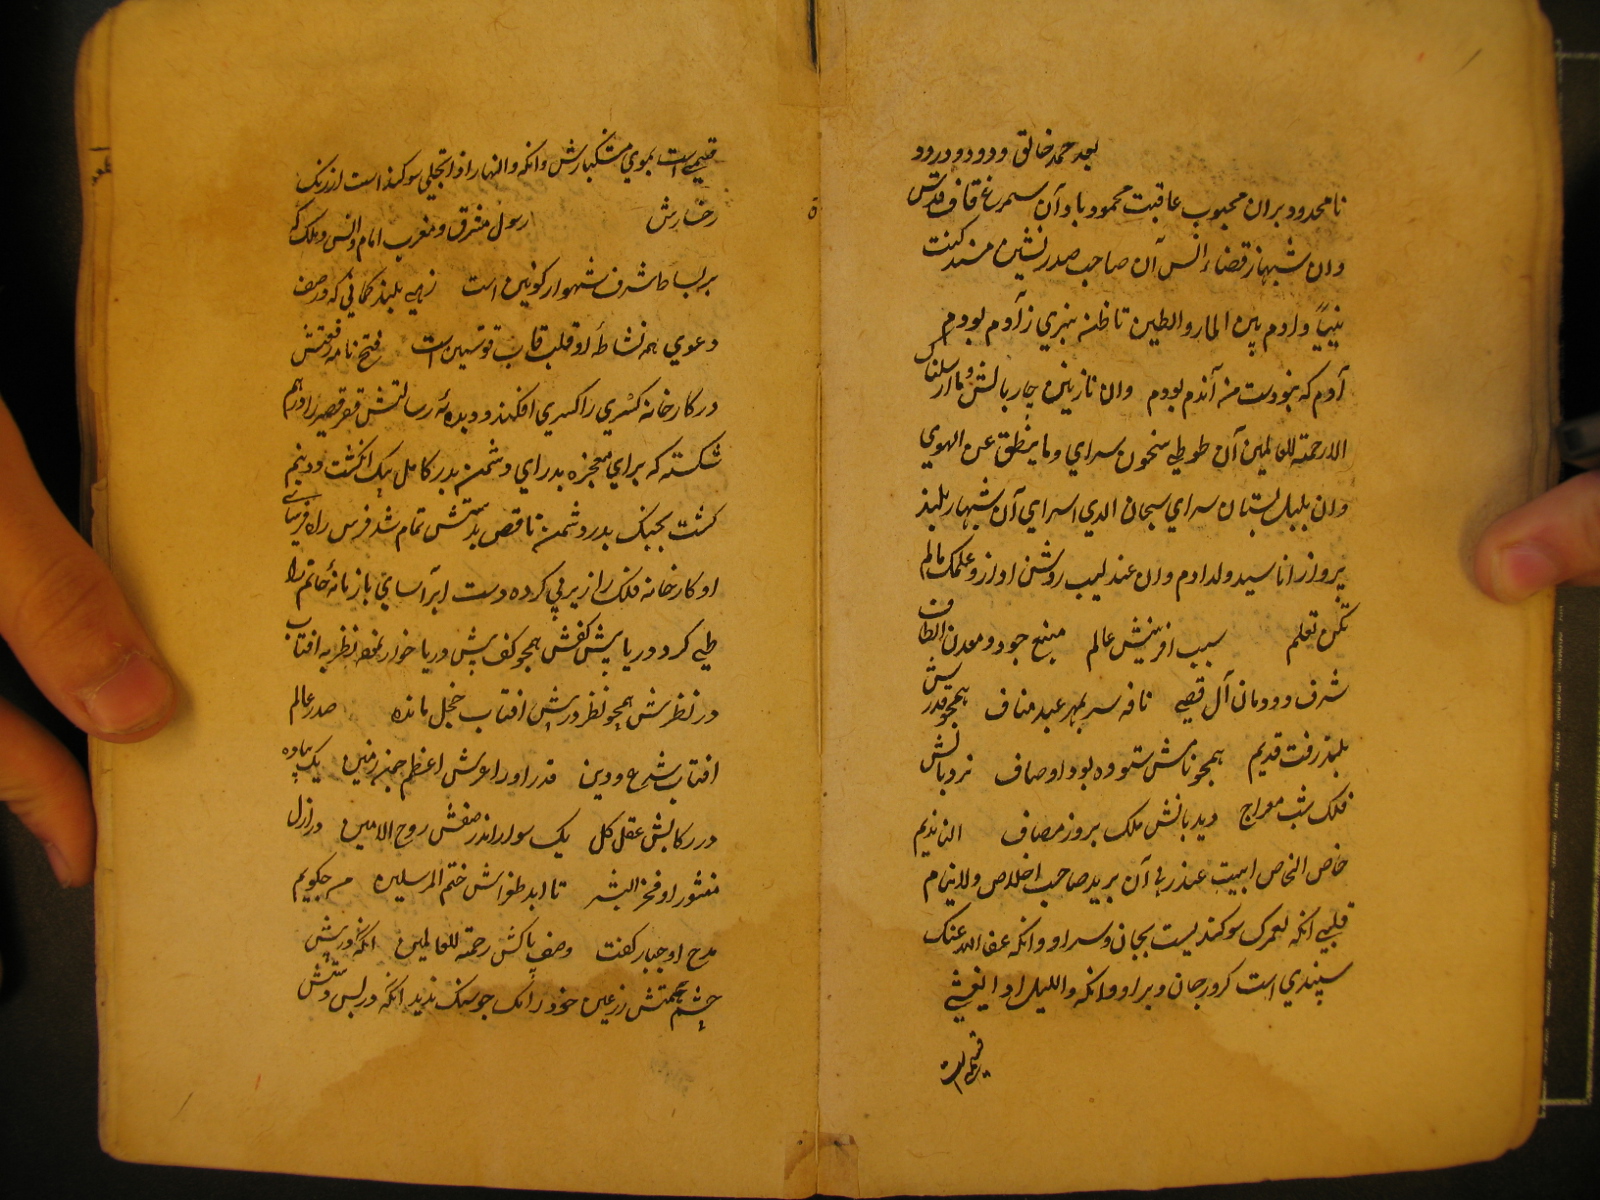 بعد حمد خالق ودود و درود
نامحدود بران محبوب عاقبت محمود باد آن سیمرغ قاف قدس
وان شهباز قضاء انس آن صاحب صدر نشین مسند کنت
نبیاً وادم بین الماء والطین تا ظن نبری ز آدم بودم
آدم که نبودست من آندم بودم والا نازنین چار بالش وما ارسلناک
الا رحمة للعالمین آن طوطی سخن سرای وما ینطق عن الهوی
وان بلبل بستان سرای سبحان الذی اسرای آن شهباز بلند
پرواز انا سید ولد ادم وان عندلیب روشن اواز وعلمک مالم
تکن تعلم سبب افرینش عالم منبع جود و معدن الطاف
شرف دودمان آل قصی نافه سر بمهر عبد مناف همچو قدرش
بلند رفت قدیم همچو نامش ستوده بود اوصاف نردبانش
فلک شب معراج دیدبانش ملک بروز مصاف ان ندیم
خاص الخاص ابیت عند ربی آن برید صاحب اخلاص ولا ینام
قلبی انکه لعمرک سوکندیست بجان و سر او وانکه عفا الله عنک
سپندی است کرد جان و بر او وانکه واللیل اذا یغشی
قسمی است
قسمی است بموی مشکبارش وانکه والنهار اذا تجلی سوکند است از رنک
رخسارش رسول مشرق و مغرب امام وانس و ملک که
بر بساط شرف شهسوار کونین است زهی بلند کمانی که در صف
دعوی همه نشاط او قلب قاب قوسین است فتح نامه فتحش
در کارخانه کسری را کسری افکند و دبدبه رسالتش قصر قیصر را درهم
شکسته که برای معجزه بدر ای دشمن بدر کامل بیک انکشت دو نیم
کشت بجنک بدر دشمن ناقص بدستش تمام شد فرس راه فرسای
او کارخانه فلک را زیر پی کرده دست ابر آسای باز نامه حاتم را
طی کرد دریا پیش کفش همچو کف پیش دریا خوار نظر به افتاب
در نظرش همچو نظر در پیش افتاب خجل مانده صدر عالم
افتاب شرع و دین قدر او را عرش اعظم چند زمین یک پیاده
در رکابش عقل کل یک سوار اندر صفش روح الامین در ازل
منشور او فخر البشر تا ابد طغراش ختم المرسلین من چکویم
مدح او جبار کفت وصف پاکش رحمة للعالمین انکه در پیش
چشم همتش زر عین خود را یک جو سنک ندید انکه در پس و پیش